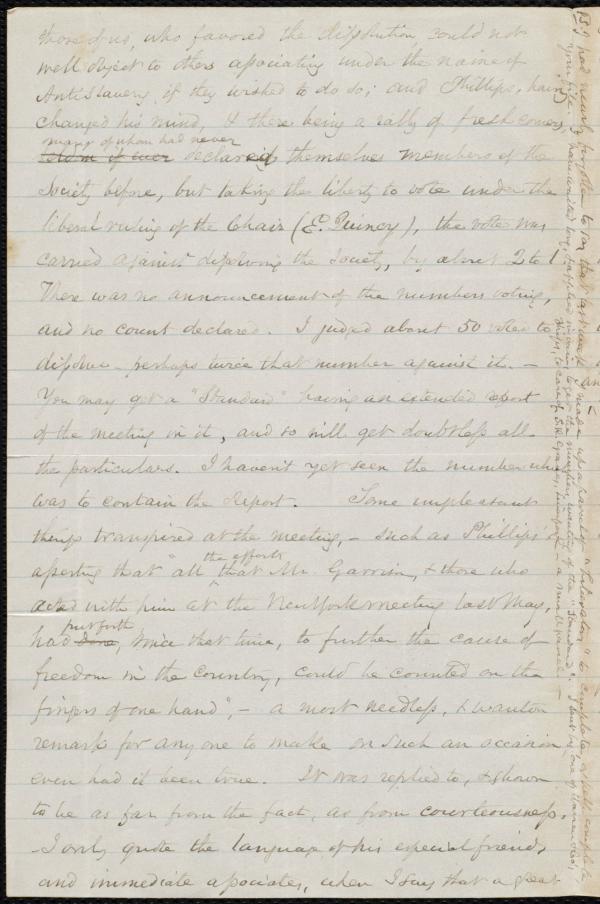 those of us, who favored the dissolution could not
well object to others associating under the name of
AntiSlavery, if they wished to do so; and Phillips, having
changed his mind, & there being a rally of fresh comers,
many of whom had never
declared themselves members of the
Society before, but taking the liberty to vote under the
liberal ruling of the Chair (E. Quincy), the vote was
carried against dissolving the Society, by about 2 to 1.
There was no announcement of the numbers voting,
and no count declared. I judged about 50 voted to
dissolve - perhaps twice that number against it. -
You may get a "Standard" having an extended report
of the meeting in it, and so will get doubtless all
the particulars. I haven't yet seen the number which
was to contain the Report. Some unpleasant
things transpired at the meeting, - such as Phillips'
asserting that "all the efforts that Mr. Garrison, & those who
acted with him at the New York meeting last May,
had put forth, since that time, to further the cause of
freedom in the Country, could be counted on the
fingers of one hand", - a most needless, & wanton
remark for any one to make on such an occasion
even had it been true. It was replied to, & shown
to be as far from the fact, as from courteousness.
- I only quote the language of his especial friends,
and immediate associates, when I say that a great
PS I had nearly forgotten to say that last week I made up a parcel of "Liberators" to complete
your file
numbers wanting of the "Standard".
- a small parcel -